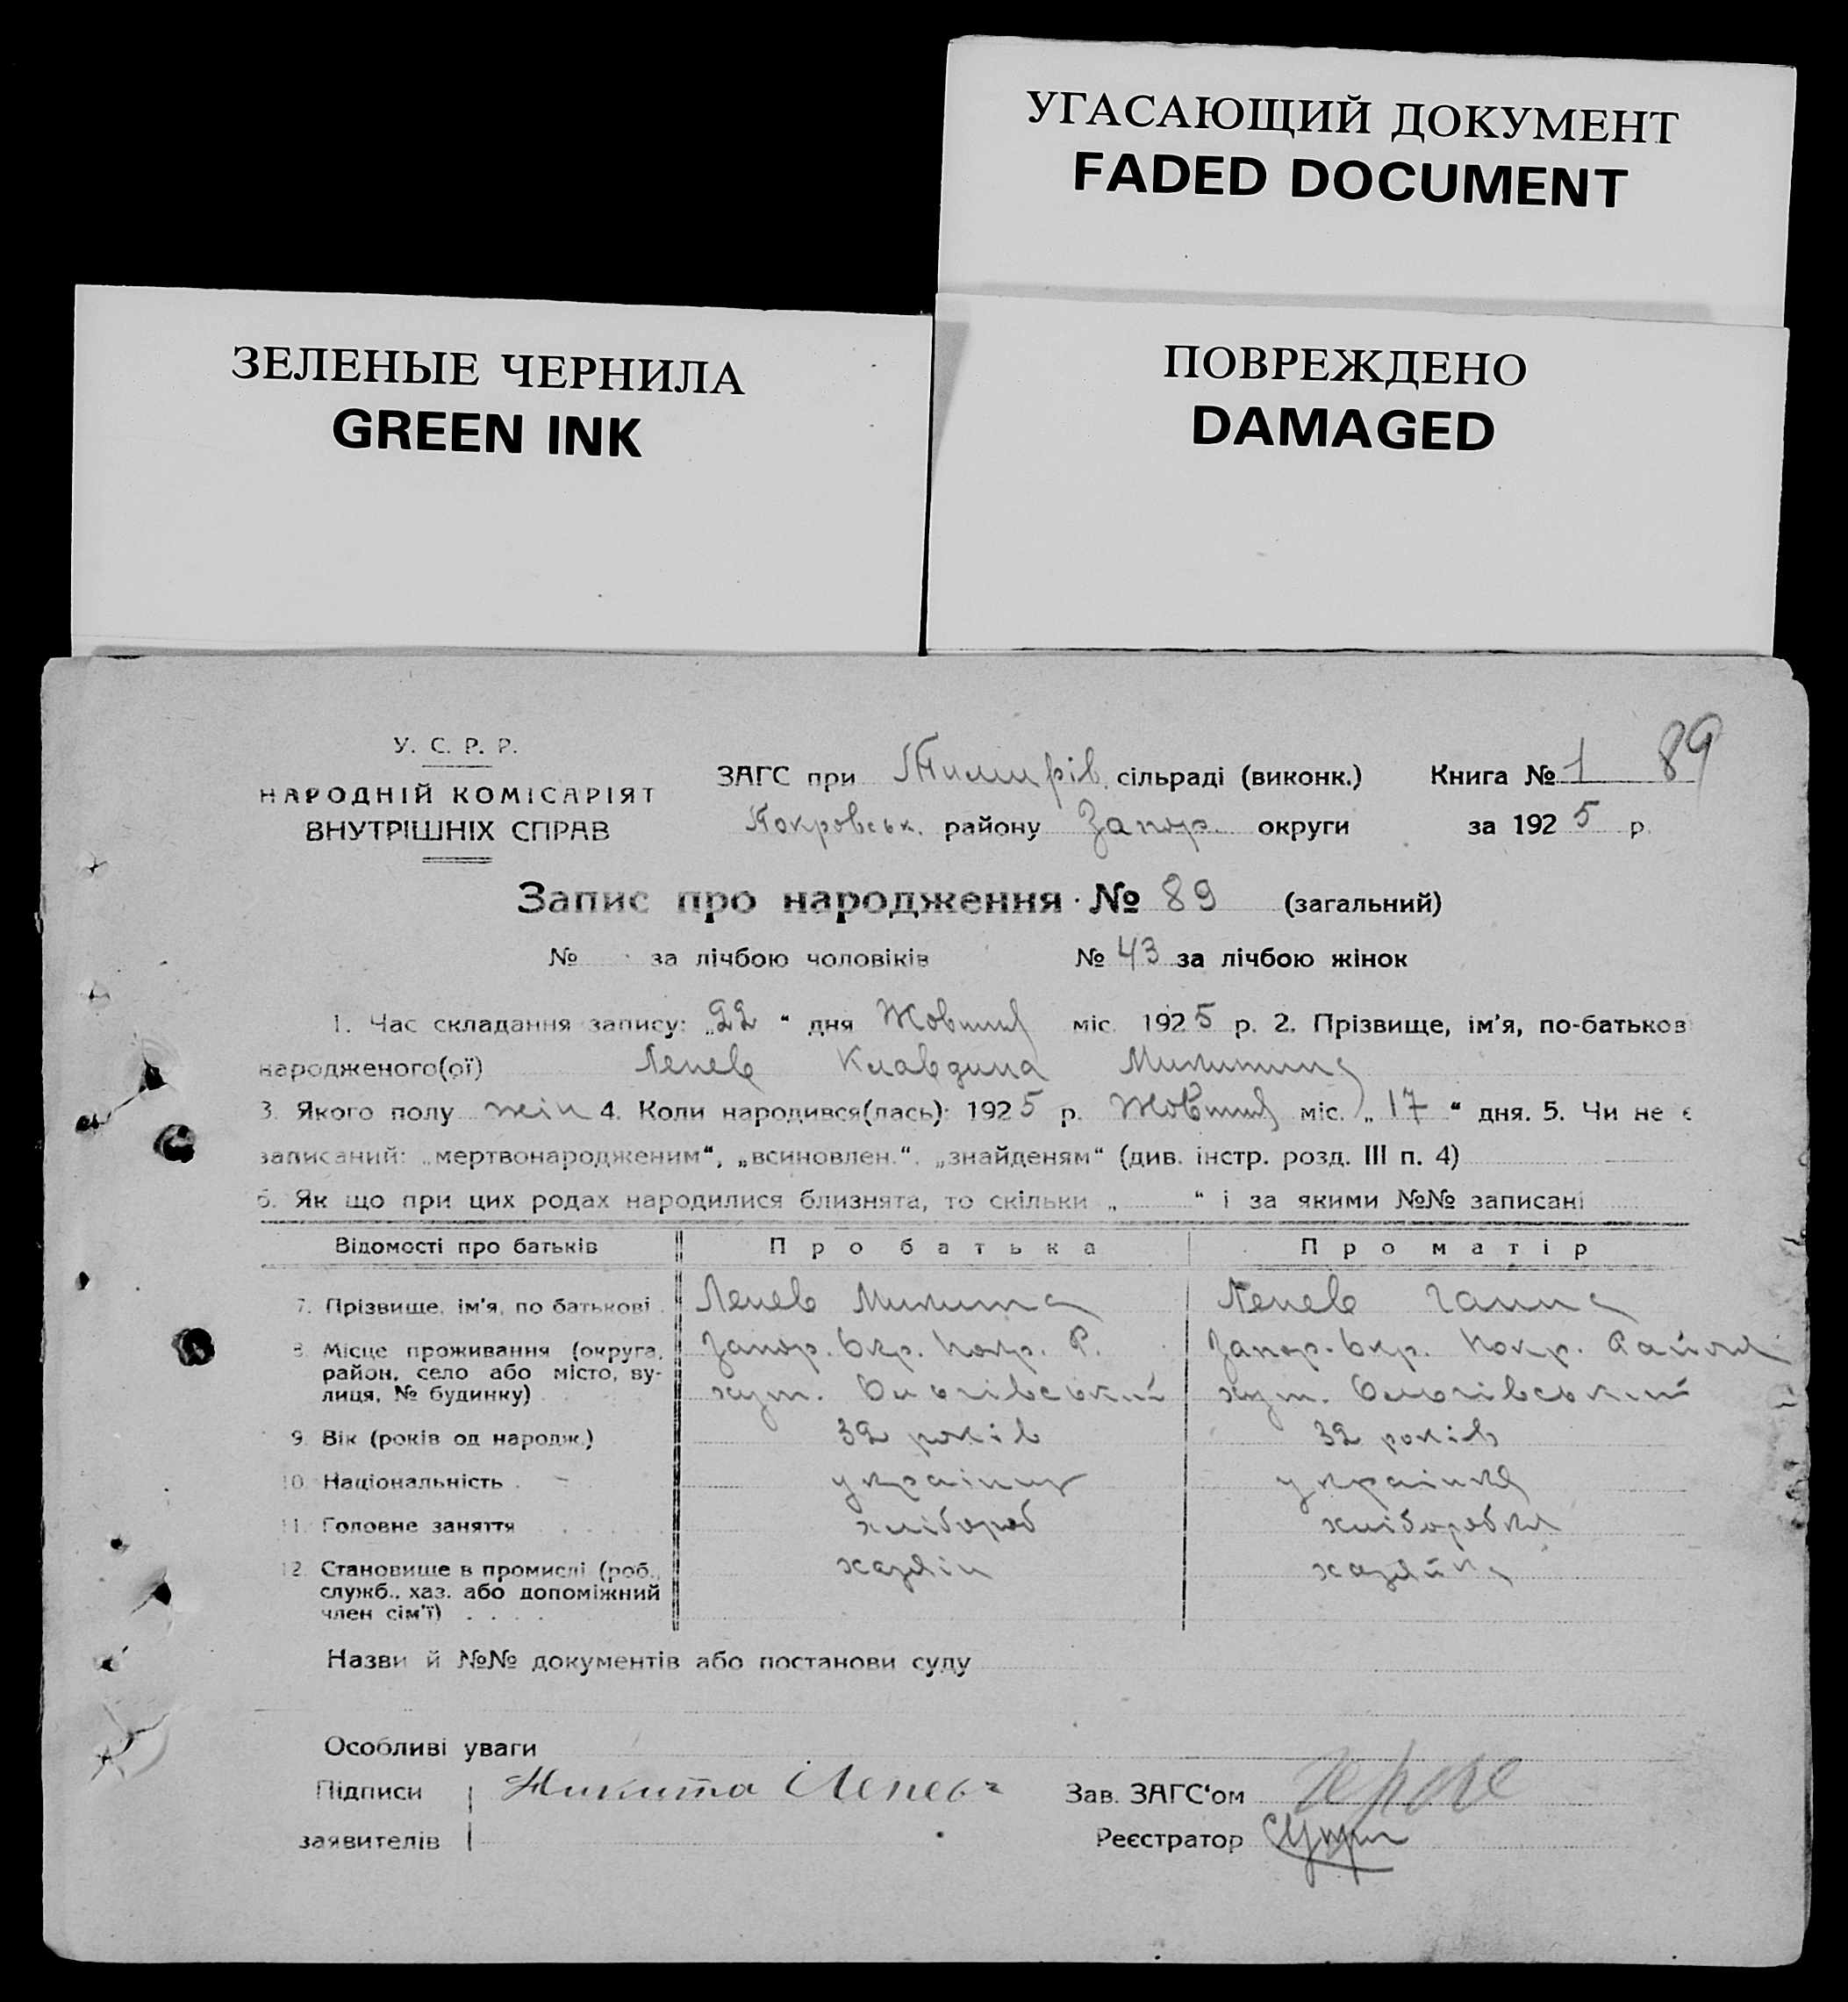 УГАСАЮЩИЙ ДОКУМЕНТ
FADED DOCUMENT
ЗЕЛЕНЫЕ ЧЕРНИЛА
GREEN INK
ПОВРЕЖДЕНО
DAMAGED
У. С. Р. Р.
НАРОДНІЙ КОМІСАРІЯТ
ВНУТРІШНІХ СПРАВ
ЗАГС при сільраді (виконк.) Книга № 1 89
Покровськ. району Запор. округи за 1925 р.
Запис про народження № 89 (загальний)
№ за лічбою чоловіків № 43 за лічбою жінок
1. Час складання запису: „22“ дня Жовтня міс. 1925 р. 2. Прізвище, ім'я, по-батьков
народженого(ої) Лепев Клавдина Микитина
3. Якого полу жін 4. Коли народився(лась): 1925 р. Жовтня міс. „17“ дня. 5. Чи не є
записаний: „мертвонародженим“, „всиновлен.“, „знайденям“ (див. інстр. розд. III п. 4)
6. Як що при цих родах народилися близнята, то скільки „ “ і за якими №№ записані
Відомості про батьків Про батька Про матір
7. Прізвище, ім'я, по батькові Лепев Микита Лепев Ганна
8. Місце проживання (округа, Запор. Окр. Покр. Р. Запор. Окр. Покр. Район
район, село або місто, ву- хут. Ольгівський хут. Ольгівський
лиця, № будинку)
9. Вік (років од народж.) 32 років 32 років
10. Національність українц українка
11. Головне заняття хлібороб хліборобка
12. Становище в промислі (роб., хазяін хазяйка
служб., хаз. або допоміжний
член сім'ї)
Назви й №№ документів або постанови суду
Особливі уваги
Підписи Никита Лепевъ Зав. ЗАГС'ом
заявителів Реєстратор